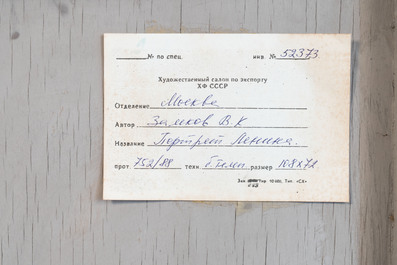 № по спец. инв. № 52373
Художественный салон по экспорту
ХФ СССР
Отделение Москва
Автор Замков В К
Название Портрет Ленина.
прот 752/88 техн. б темп размер 108х72